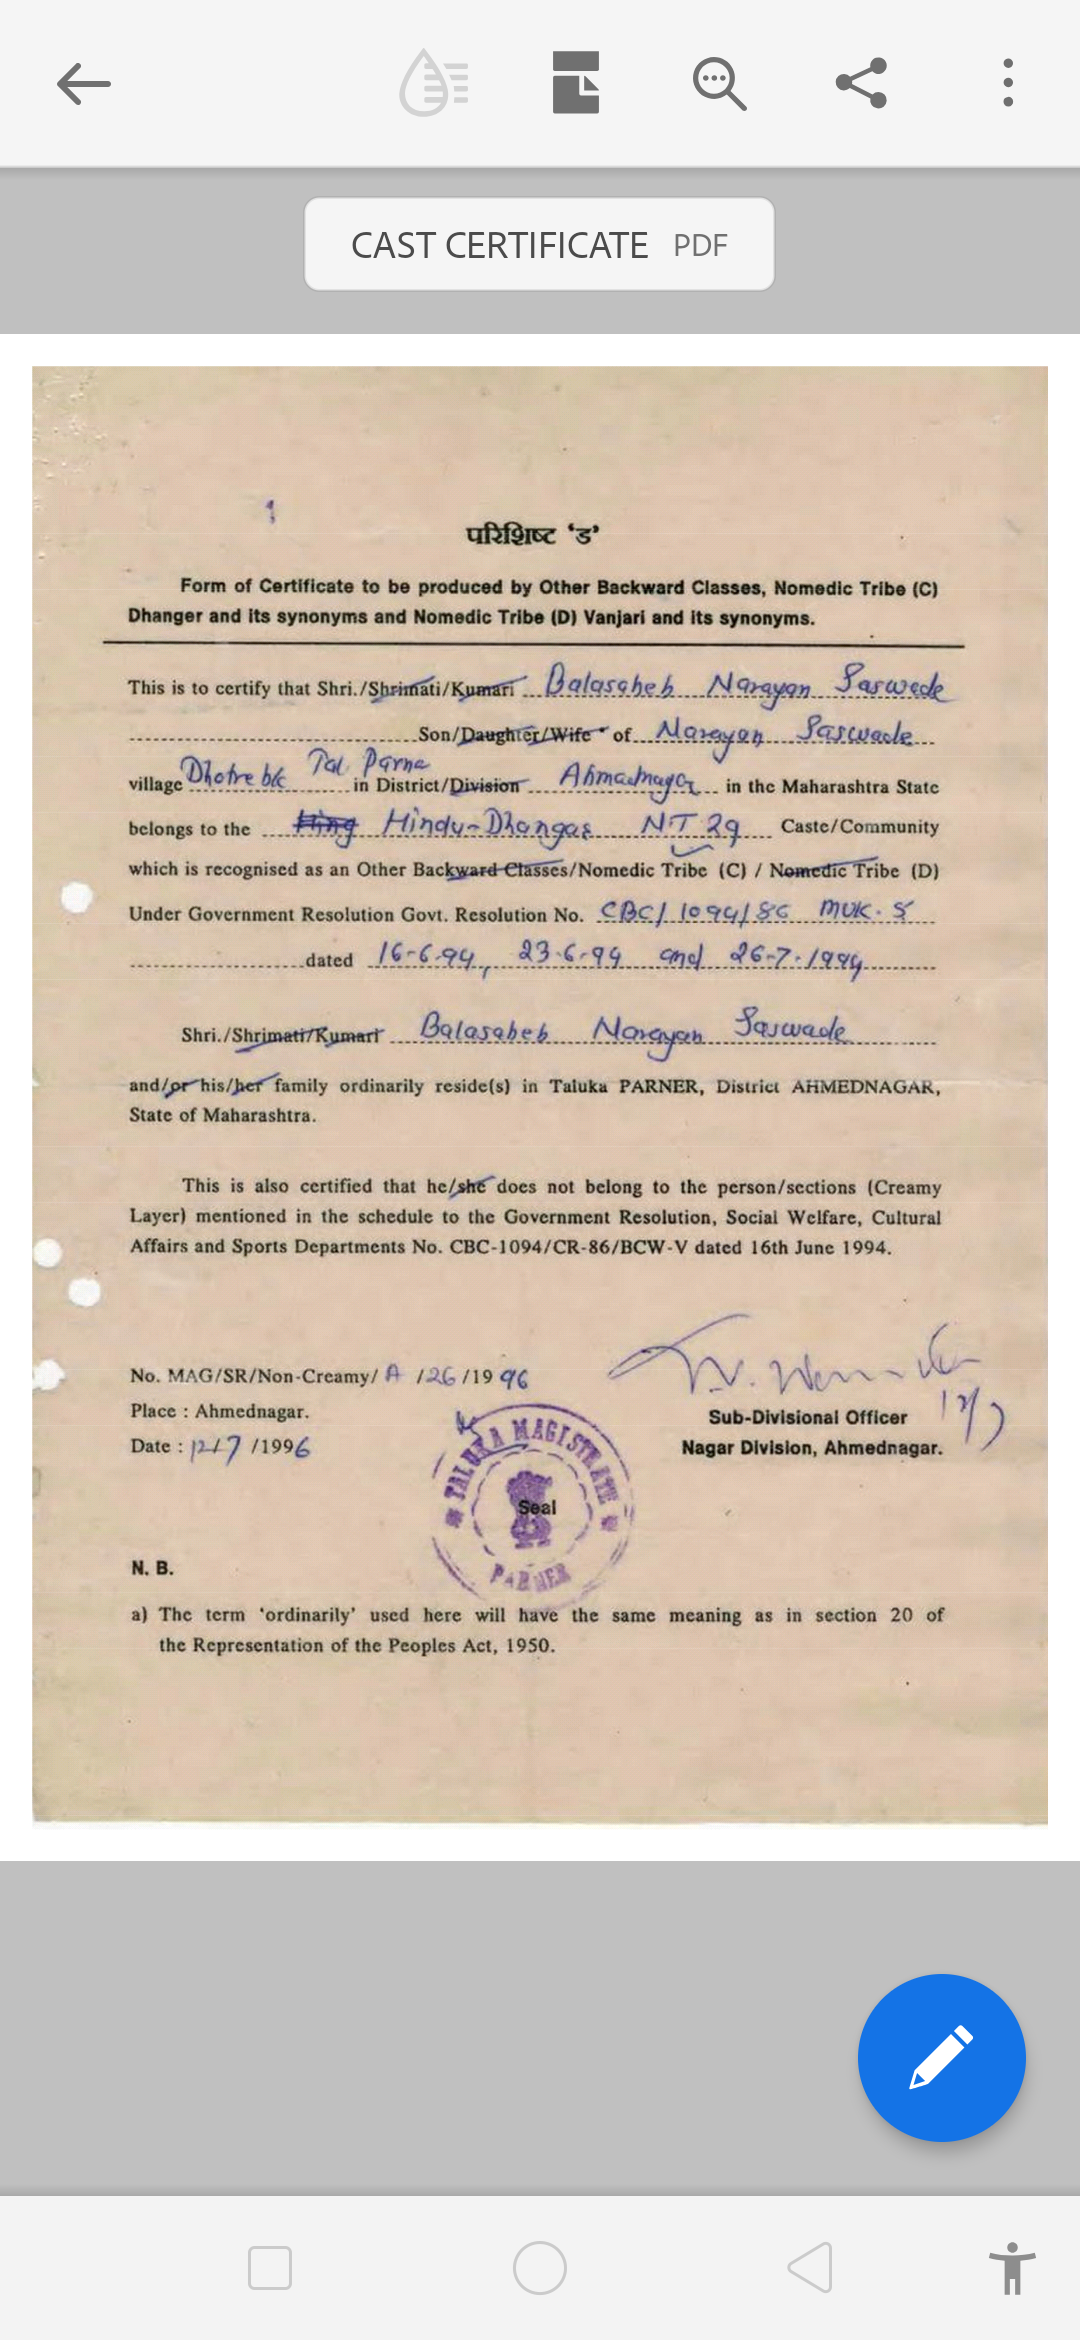 CAST CERTIFICATE PDF
1
परिशिष्ट 'ड'
Form of Certificate to be produced by Other Backward Classes, Nomedic Tribe (C)
Dhanger and its synonyms and Nomedic Tribe (D) Vanjari and its synonyms.
This is to certify that Shri./Shrimati/Kumari Balasaheb Narayan Saswade
Son/Daughter/Wife of Narayan Saswade
village Dhotre bk Tal. Parner in District/Division Ahmadnagar in the Maharashtra State
belongs to the Hindu-Dhangar NT 29 Caste/Community
which is recognised as an Other Backward Classes/Nomedic Tribe (C) / Nomedic Tribe (D)
Under Government Resolution Govt. Resolution No. CBC/1094/86 MUK. 5
dated 16-6-94, 23-6-94 and 26-7-1994
Shri./Shrimati/Kumari Balasaheb Narayan Saswade
and/or his/her family ordinarily reside(s) in Taluka PARNER, District AHMEDNAGAR,
State of Maharashtra.
This is also certified that he/she does not belong to the person/sections (Creamy
Layer) mentioned in the schedule to the Government Resolution, Social Welfare, Cultural
Affairs and Sports Departments No. CBC-1094/CR-86/BCW-V dated 16th June 1994.
No. MAG/SR/Non-Creamy/ A /26/1996
Place : Ahmednagar.
Date : 12/7/1996
12/7
Sub-Divisional Officer
Nagar Division, Ahmednagar.
TALUKA MAGISTRATE
Seal
PARNER
N. B.
a) The term 'ordinarily' used here will have the same meaning as in section 20 of
the Representation of the Peoples Act, 1950.